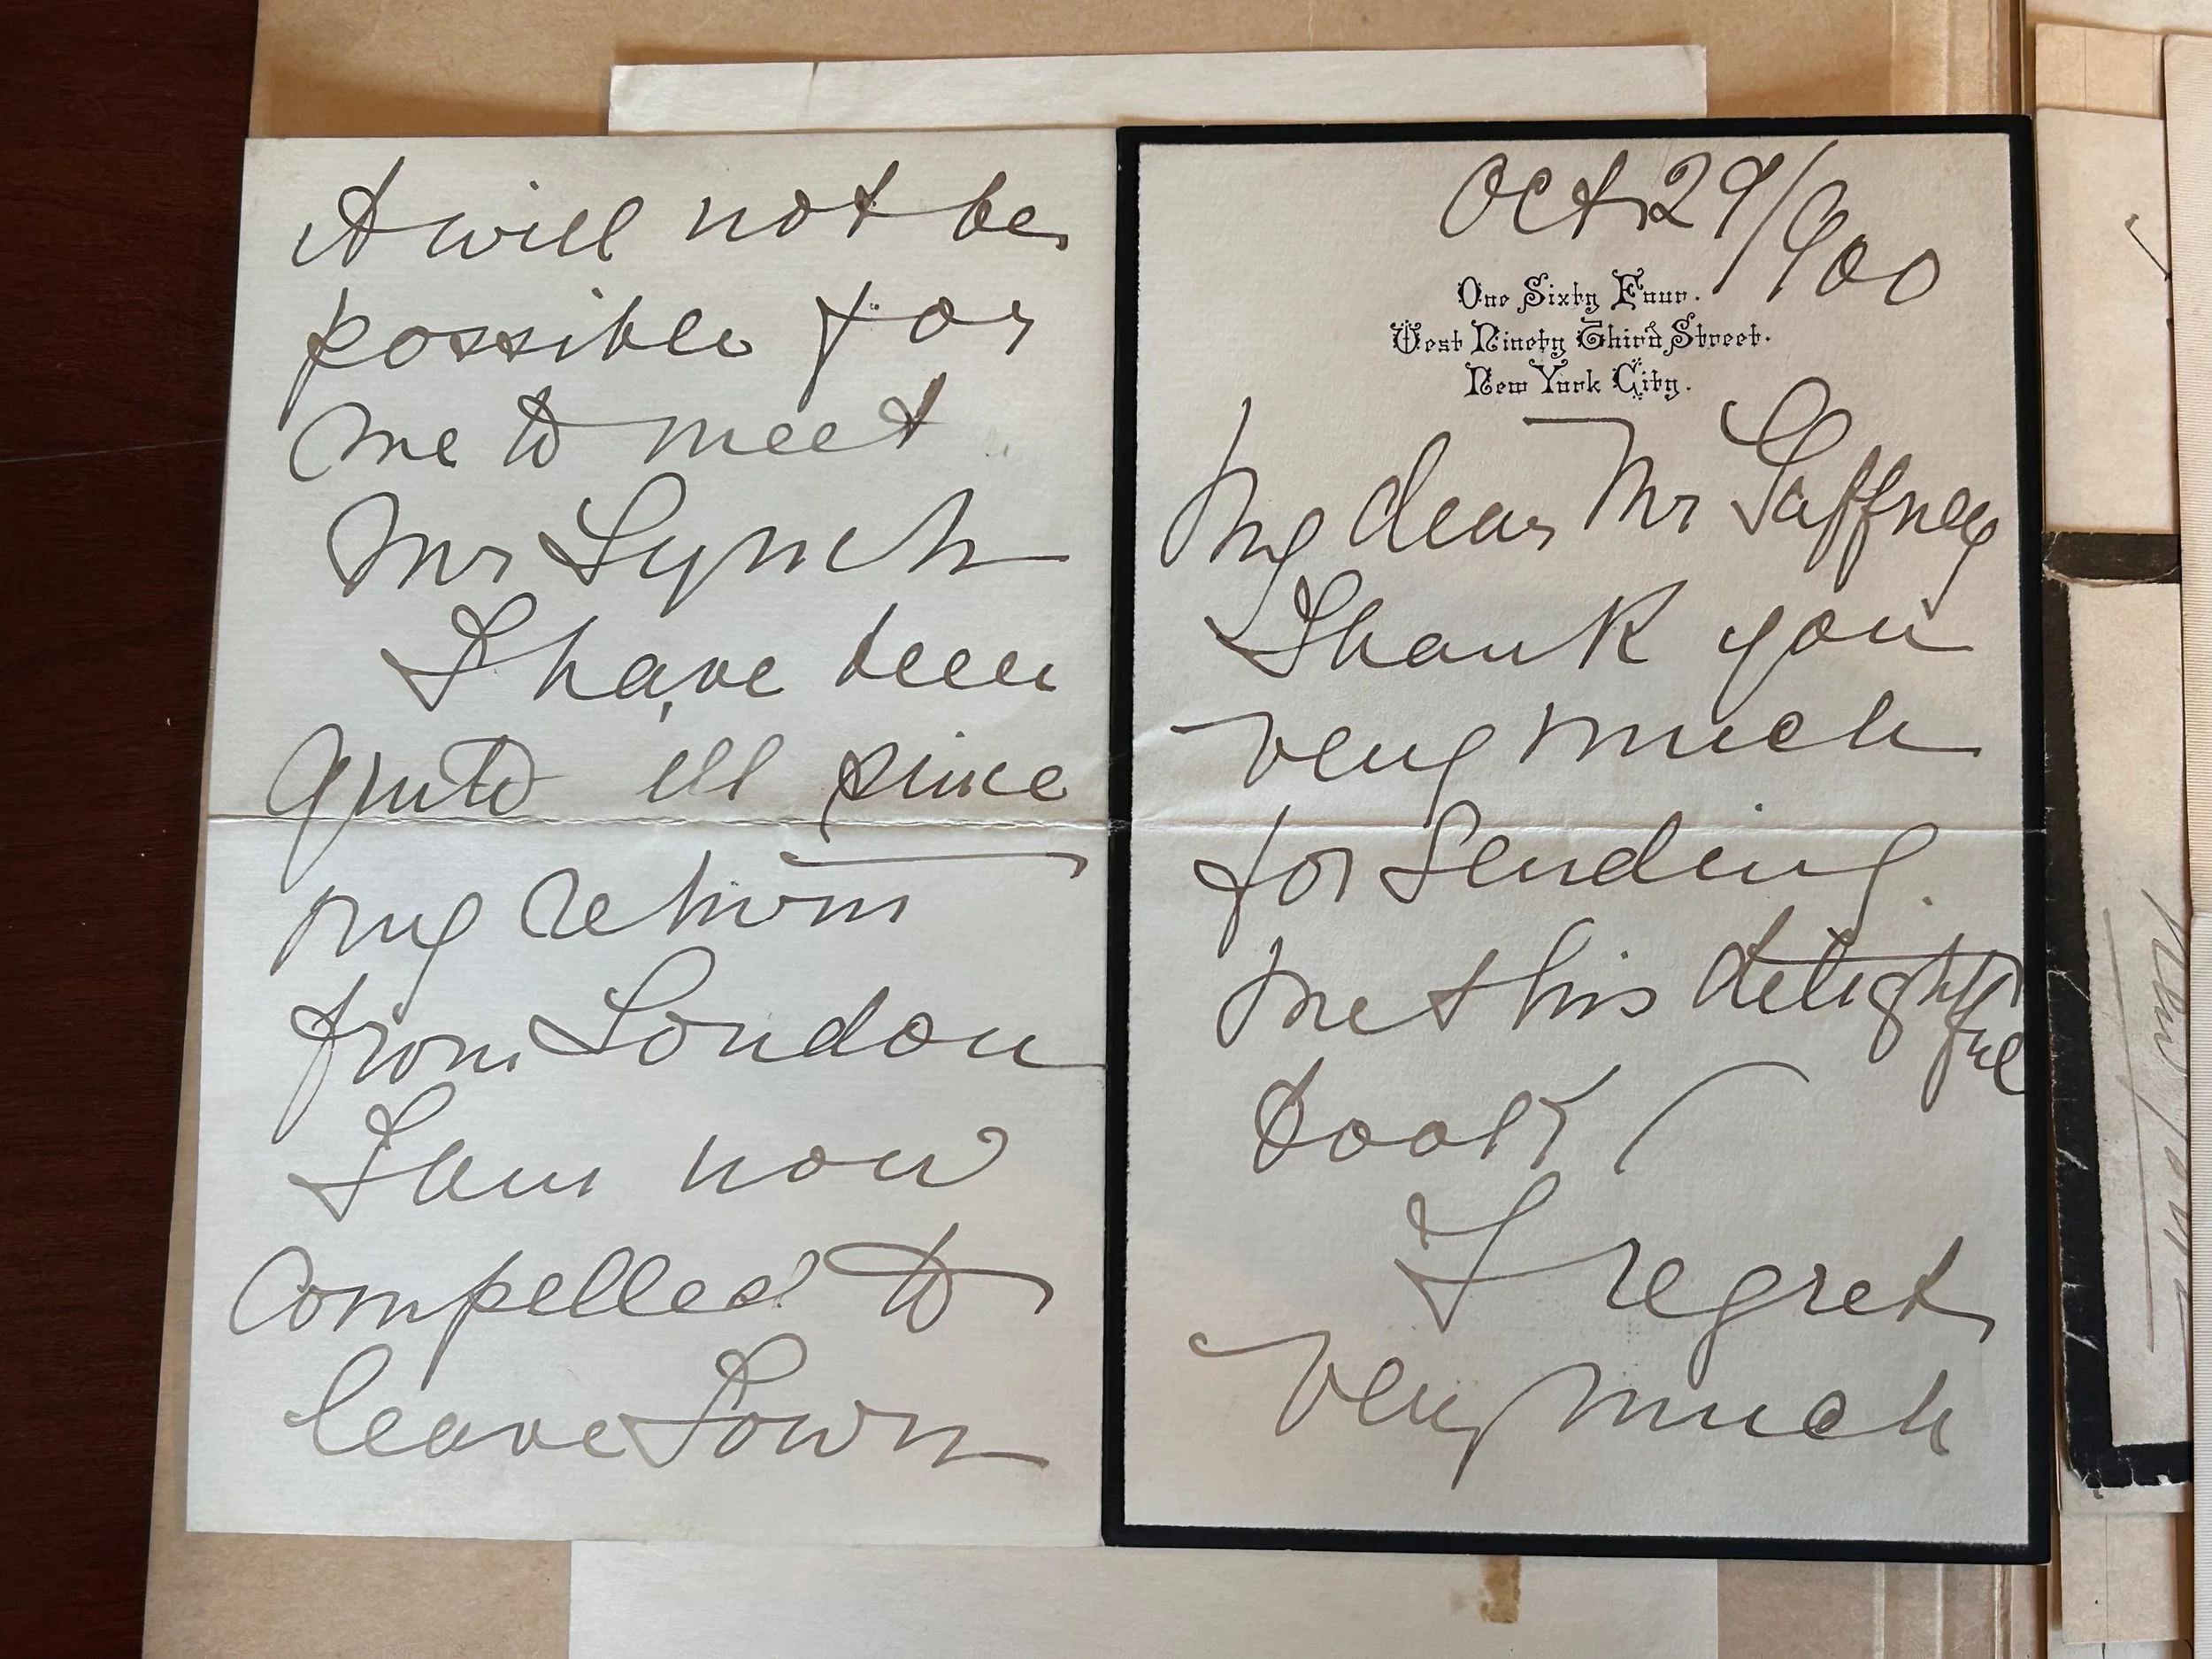 Oct 29/900
One Sixty Four.
West Ninety Third Street.
New York City.
My dear Mr Gaffney
Thank you
very much
for sending
me this delightful
book
I regret
very much
it will not be
possible for
me to meet
Mr Lynch
I have been
quite ill since
my return
from London
I am now
compelled to
leave Town